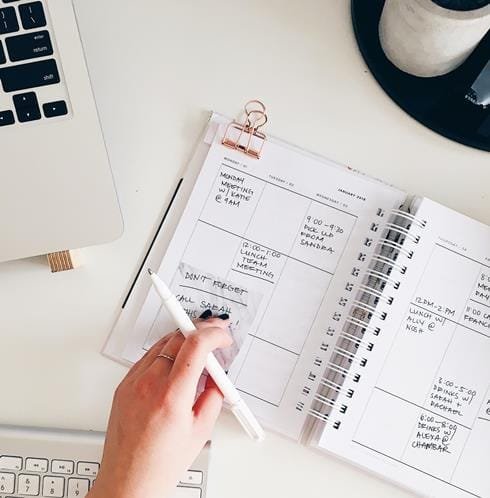 enter
return
shift
MONDAY / 01
TUESDAY / 02
WEDNESDAY / 03
JANUARY 2018
MONDAY
MEETING
W/ KATIE
@ 9AM
9:00-9:30
PICK LLD
FROM
SANDRA
12:00-1:00
LUNCH
TEAM
MEETING
DON'T FORGET
CALL SARAH
THIS
12PM-2PM
LUNCH W/
ALLY @
NOSH
3:00-5:00
DRINKS W/
SARAH +
RACHAEL
6:00-8:00
DRINKS W/
ALEYA @
CHAMBAR